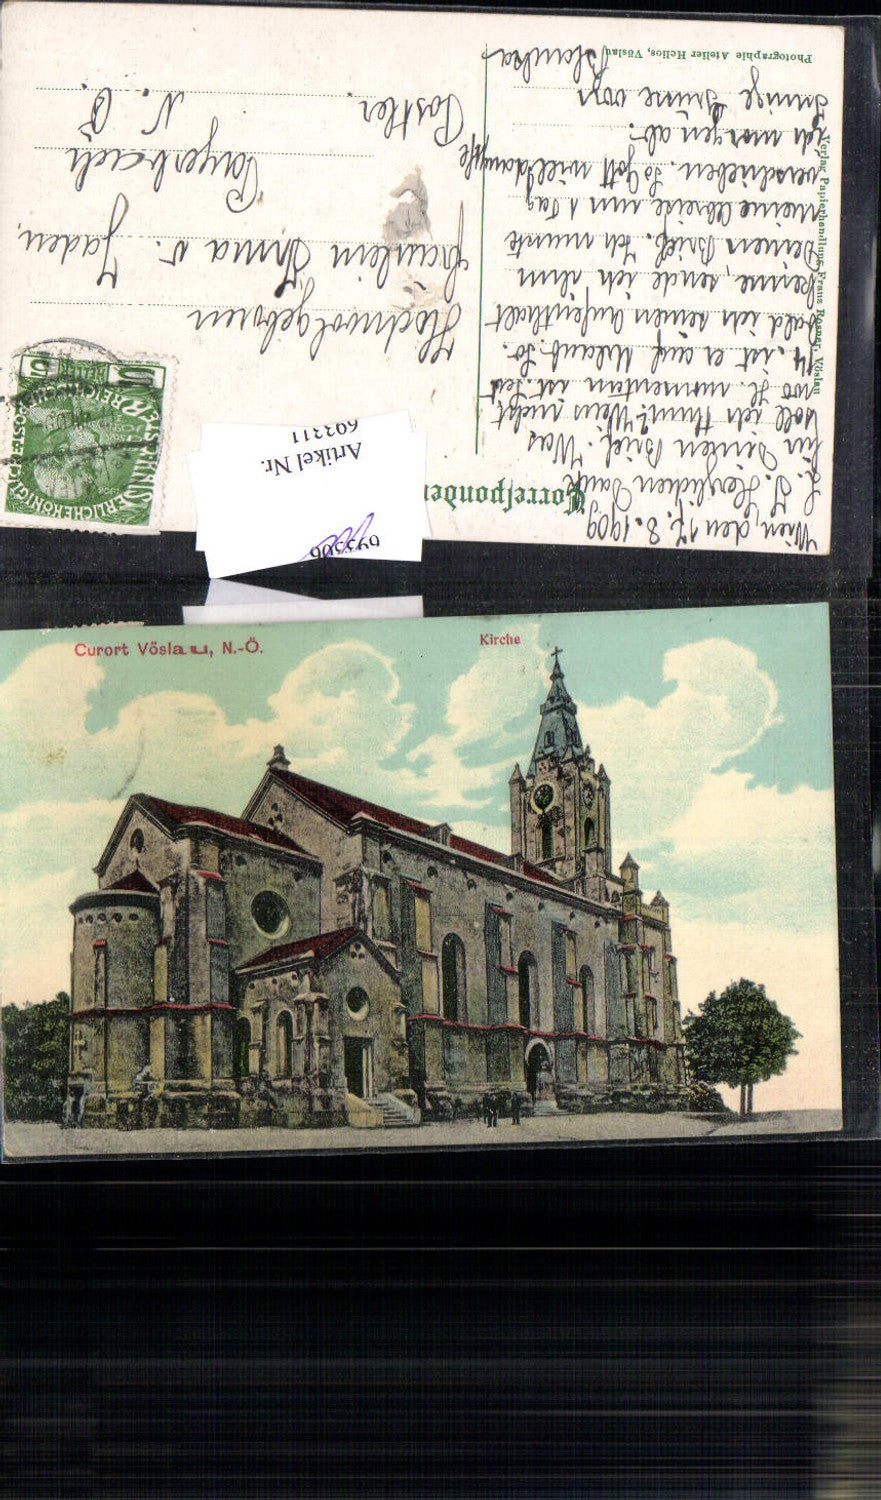 Correspondenz
Wien, den 17. 8. 1909
L. I. Herzlichen Dank
für Deinen Brief. Was
soll ich thun? Weis nicht
wo H. momentan ist. Seit
14. ist er auf Urlaub. So-
bald ich seinen Aufenthalt
kenne, sende ich ihm
Deinen Brief. Ich musste
meine Abreise um 1 Tag
verschieben. So Gott will dampfe
ich morgen ab.
Innige Grüsse von
Blanka
Hochwolgeboren
Fräulein Irma v. Jaden,
Payerbach
N. Ö.
Postler
Photographie Atelier Helios, Vöslau
Verlag Papierhandlung Franz Rosner, Vöslau
5 HELLER 5
KAISERLICHE KÖNIGLICHE
ÖSTERREICHISCHE POST
Artikel Nr.
693311
693306
Curort Vöslau, N.-Ö.
Kirche